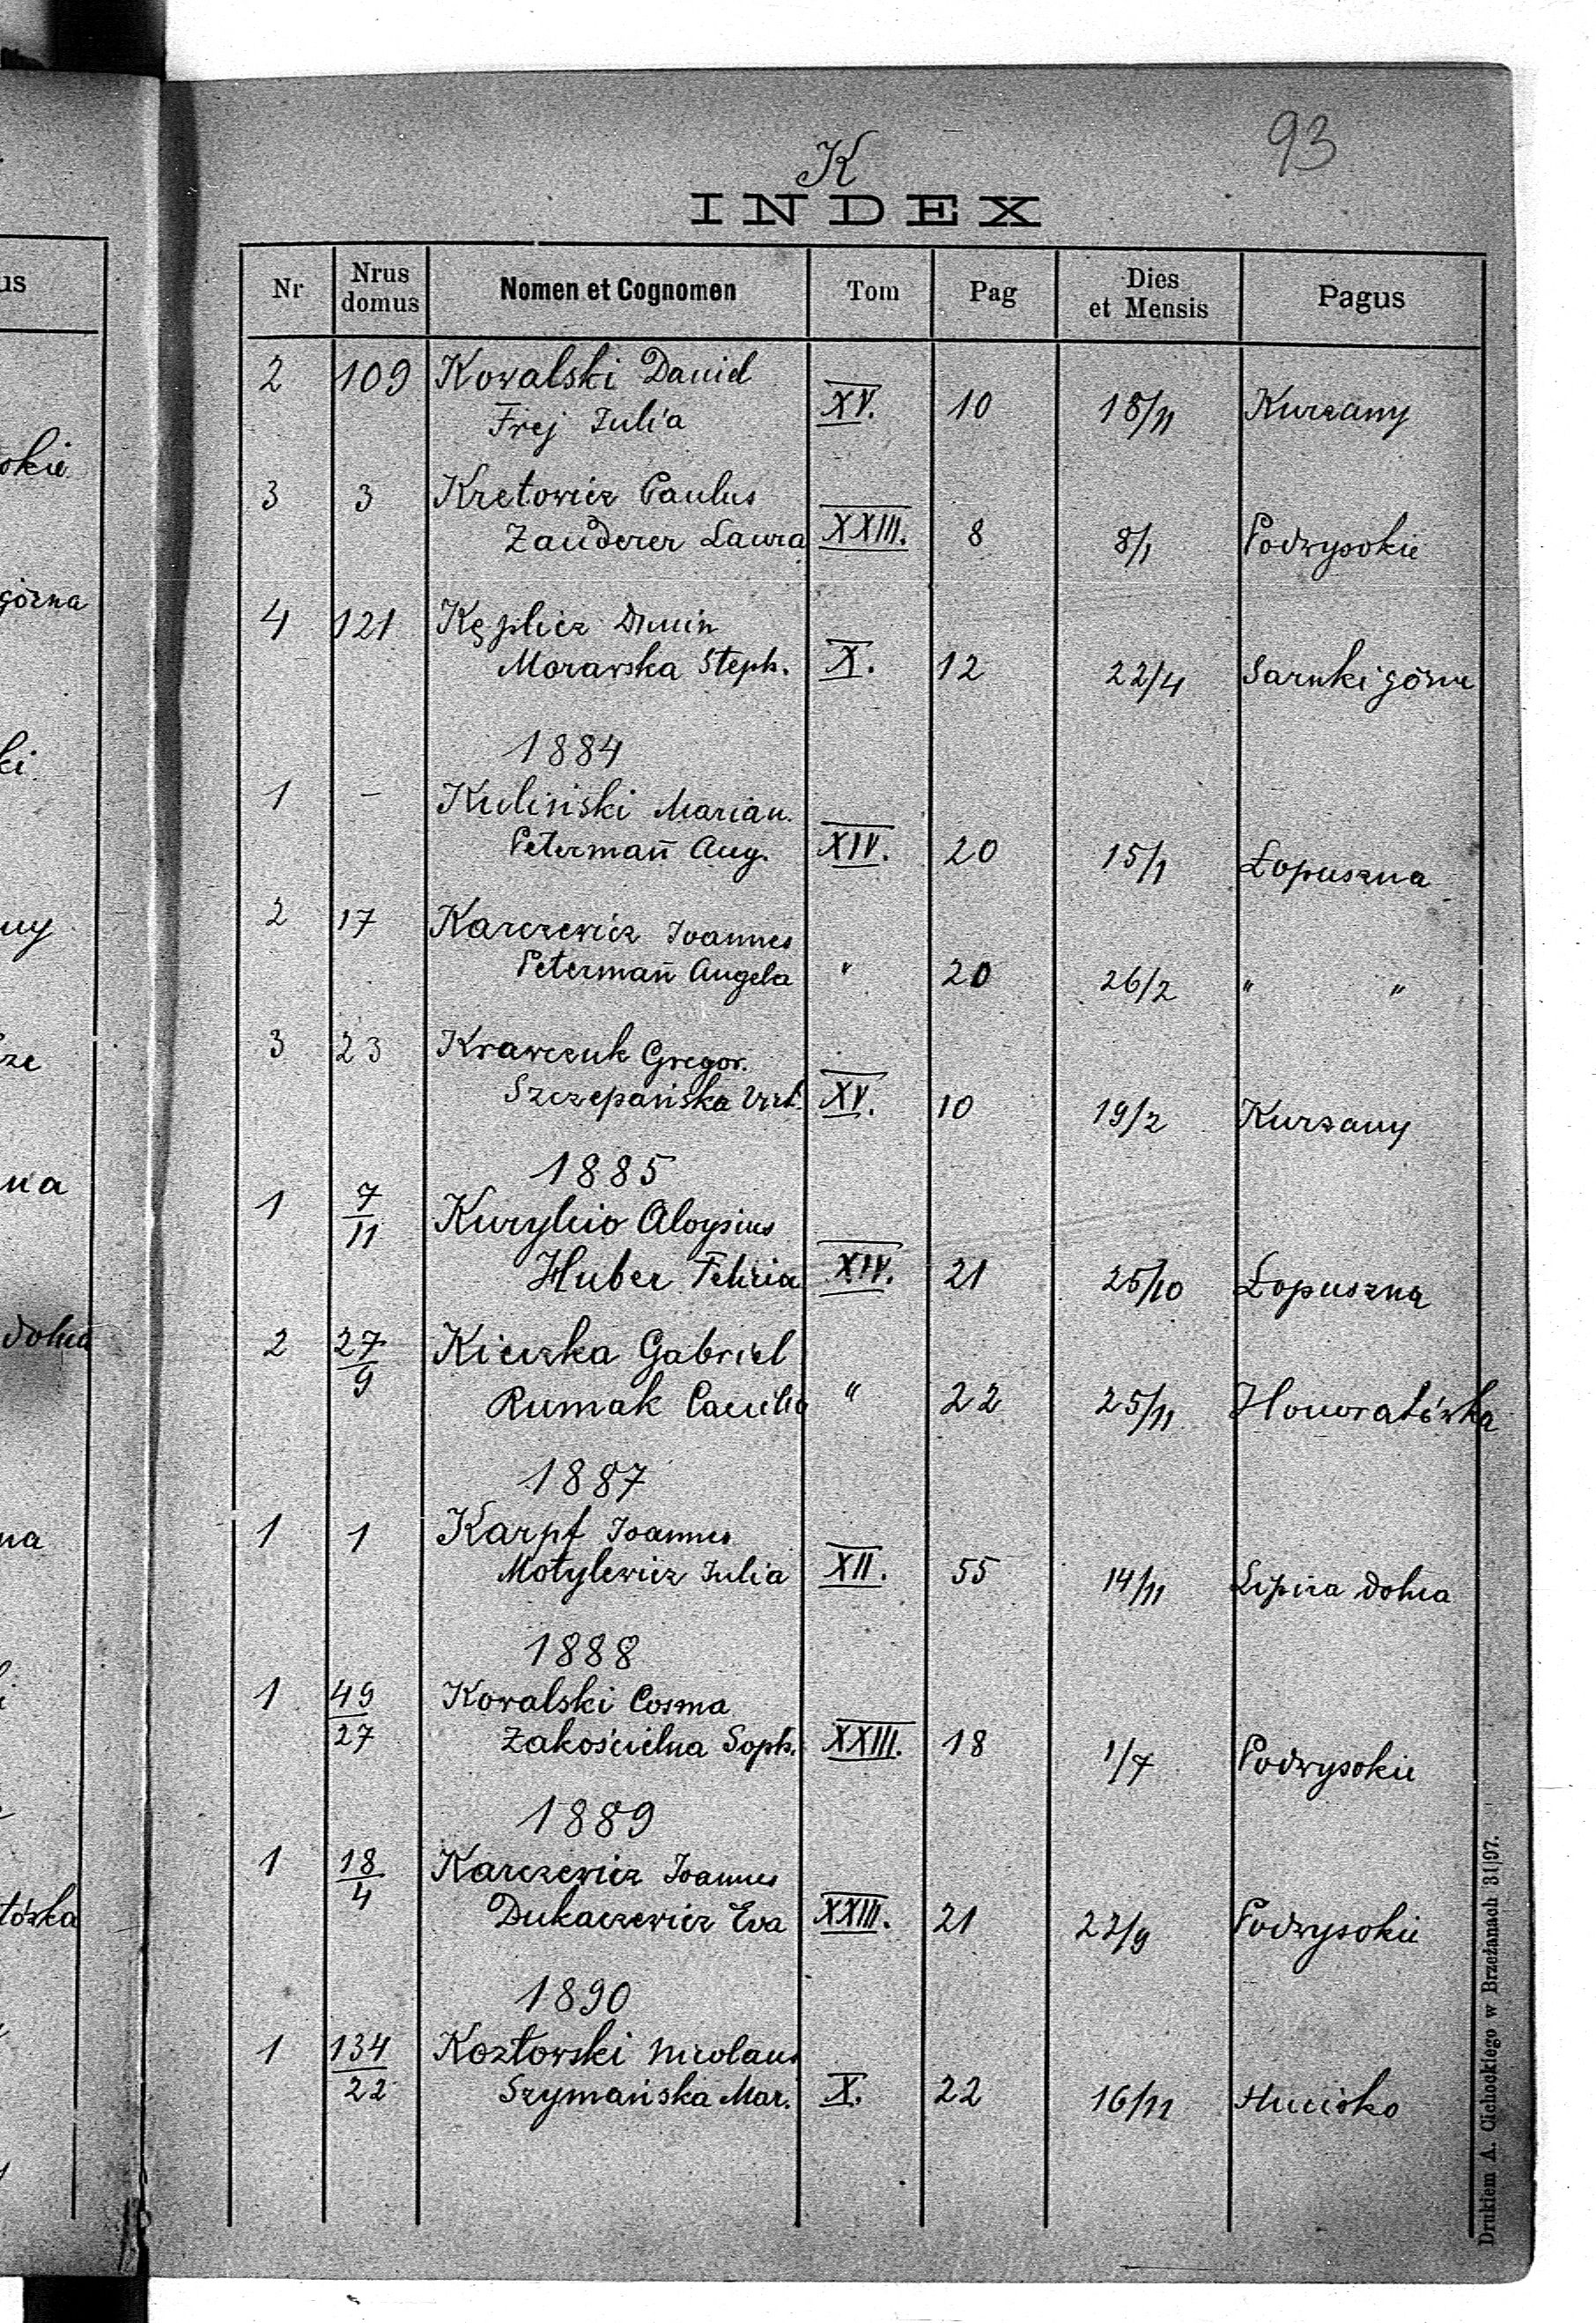 93
K
INDEX
Nr Nrus domus Nomen et Cognomen Tom Pag Dies et Mensis Pagus
2 109 Kowalski Daniel
Frej Julia XV. 10 18/11 Kurzany
3 3 Kretowicz Paulus
Zauderer Laura XXIII. 8 8/1 Podwysokie
4 121 Kęplicz Dunin
Morawska Steph. X. 12 22/4 Sarnki górne
1884
1 – Kuliński Marian.
Petermañ Aug. XIV. 20 15/1 Łopuszna
2 17 Karczewicz Joannes
Petermañ Angela " 20 26/2 " "
3 23 Krawczuk Gregor.
Szczepańska XV. 10 19/2 Kurzany
1885
1 7/11 Kuryłcio Aloysius
Huber Felicia XIV. 21 25/10 Łopuszna
2 27/9 Kieczka Gabriel
Rumak Caecilia " 22 25/11 Honoratówka
1887
1 1 Karpf Joannes
Motylewicz Julia XII. 55 14/11 Lipica dolna
1888
1 49/27 Kowalski Cosma
Zakościelna Soph. XXIII. 18 1/7 Podwysokie
1889
1 18/4 Karczewicz Joannes
Dukaczewicz Eva XXIII. 21 22/9 Podwysokie
1890
1 134/22 Kozłowski Nicolaus
Szymańska Mar. X. 22 16/11 Hucisko
Drukiem A. Cichockiego w Brzeżanach 31|97.
skie
górna
ki
ny
na
dolna
na
tówka